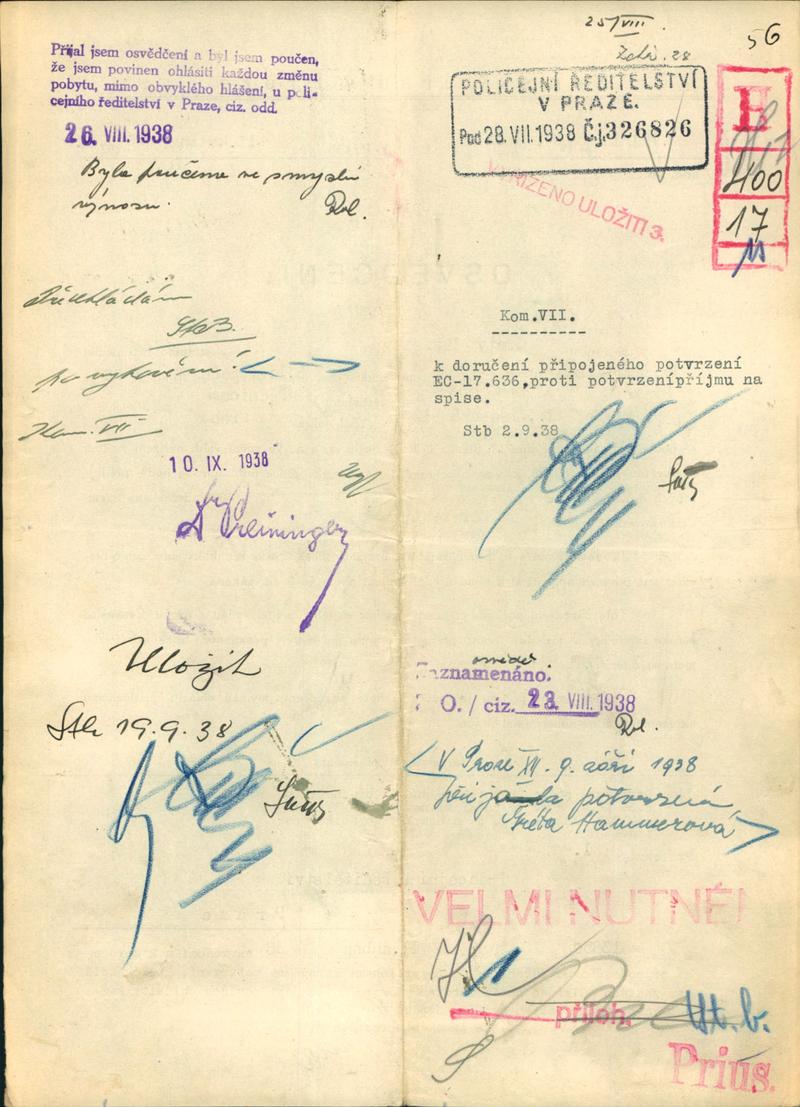 Přijal jsem osvědčení a byl jsem poučen,
že jsem povinen ohlásiti každou změnu
pobytu, mimo obvyklého hlášení, u poli-
cejního ředitelství v Praze, ciz. odd.
26. VIII. 1938
Byla poučena ve smyslu
výnosu. Rol.
Předkládám
StB.
po vykovém!
Kom. VII
10. IX. 1938
Preininger
Uložit
Stb 19.9.38
25/VIII.
56
POLICEJNÍ ŘEDITELSTVÍ
V PRAZE.
Pod 28.VII.1938 Č.j. 326826
VYŘÍZENO ULOŽITI 3.
H
400
17
Kom.VII.
k doručení připojeného potvrzení
EC-17.636,proti potvrzenípříjmu na
spise.
Stb 2.9.38
Zaznamenáno.
O. / ciz. 23. VIII. 1938
Rol.
V Praze XII. 9. září 1938
potvrzení
Gréta Hammerová
VELMI NUTNÉ!
příloh.
St. b.
Prius.